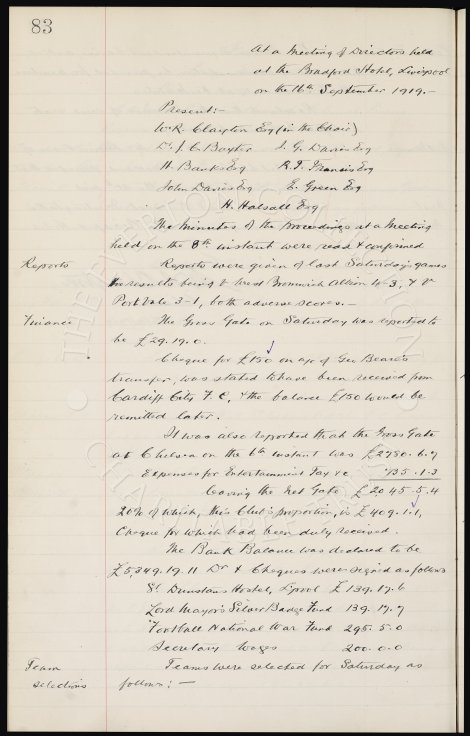 83
At a Meeting of Directors held
at the Bradford Hotel, Liverpool
on the 16th September 1919.-
Present:-
W.R. Clayton Esq (in the Chair)
Dr. J.C. Baxter J.G. Davies Esq
H. Banks Esq R.T. Francis Esq
John Davies Esq E. Green Esq
H. Halsall Esq
The Minutes of the proceedings at a Meeting
held on the 8th instant were read & confirmed
Reports Reports were given of last Saturday's games
the results being v West Bromwich Albion 4-3, & v
Port Vale 3-1, both adverse scores.-
Finance The Gross Gate on Saturday was reported to
be £29.19.0.
Cheque for £150 on a/c of Geo Beare's
transfer, was stated to have been received from
Cardiff City F.C, & the balance £150 would be
remitted later.
It was also reported that the Gross Gate
at Chelsea on the 6th instant was £2780.6.7
Expenses for Entertainment Tax &c 735.1.3
leaving the Net Gate £2045.5.4
20% of which, this Club's proportion, is £409.1.1,
Cheque for which had been duly received.
The Bank Balance was declared to be
£5,349.19.11 Dr & Cheques were signed as follows
St Dunstans Hostel, L'pool £139.17.6
Lord Mayor's Silver Badge Fund 139.17.7
Football National War Fund 295.5.0
Secretary Wages 200.0.0
Team Teams were selected for Saturday as
selections follows:-